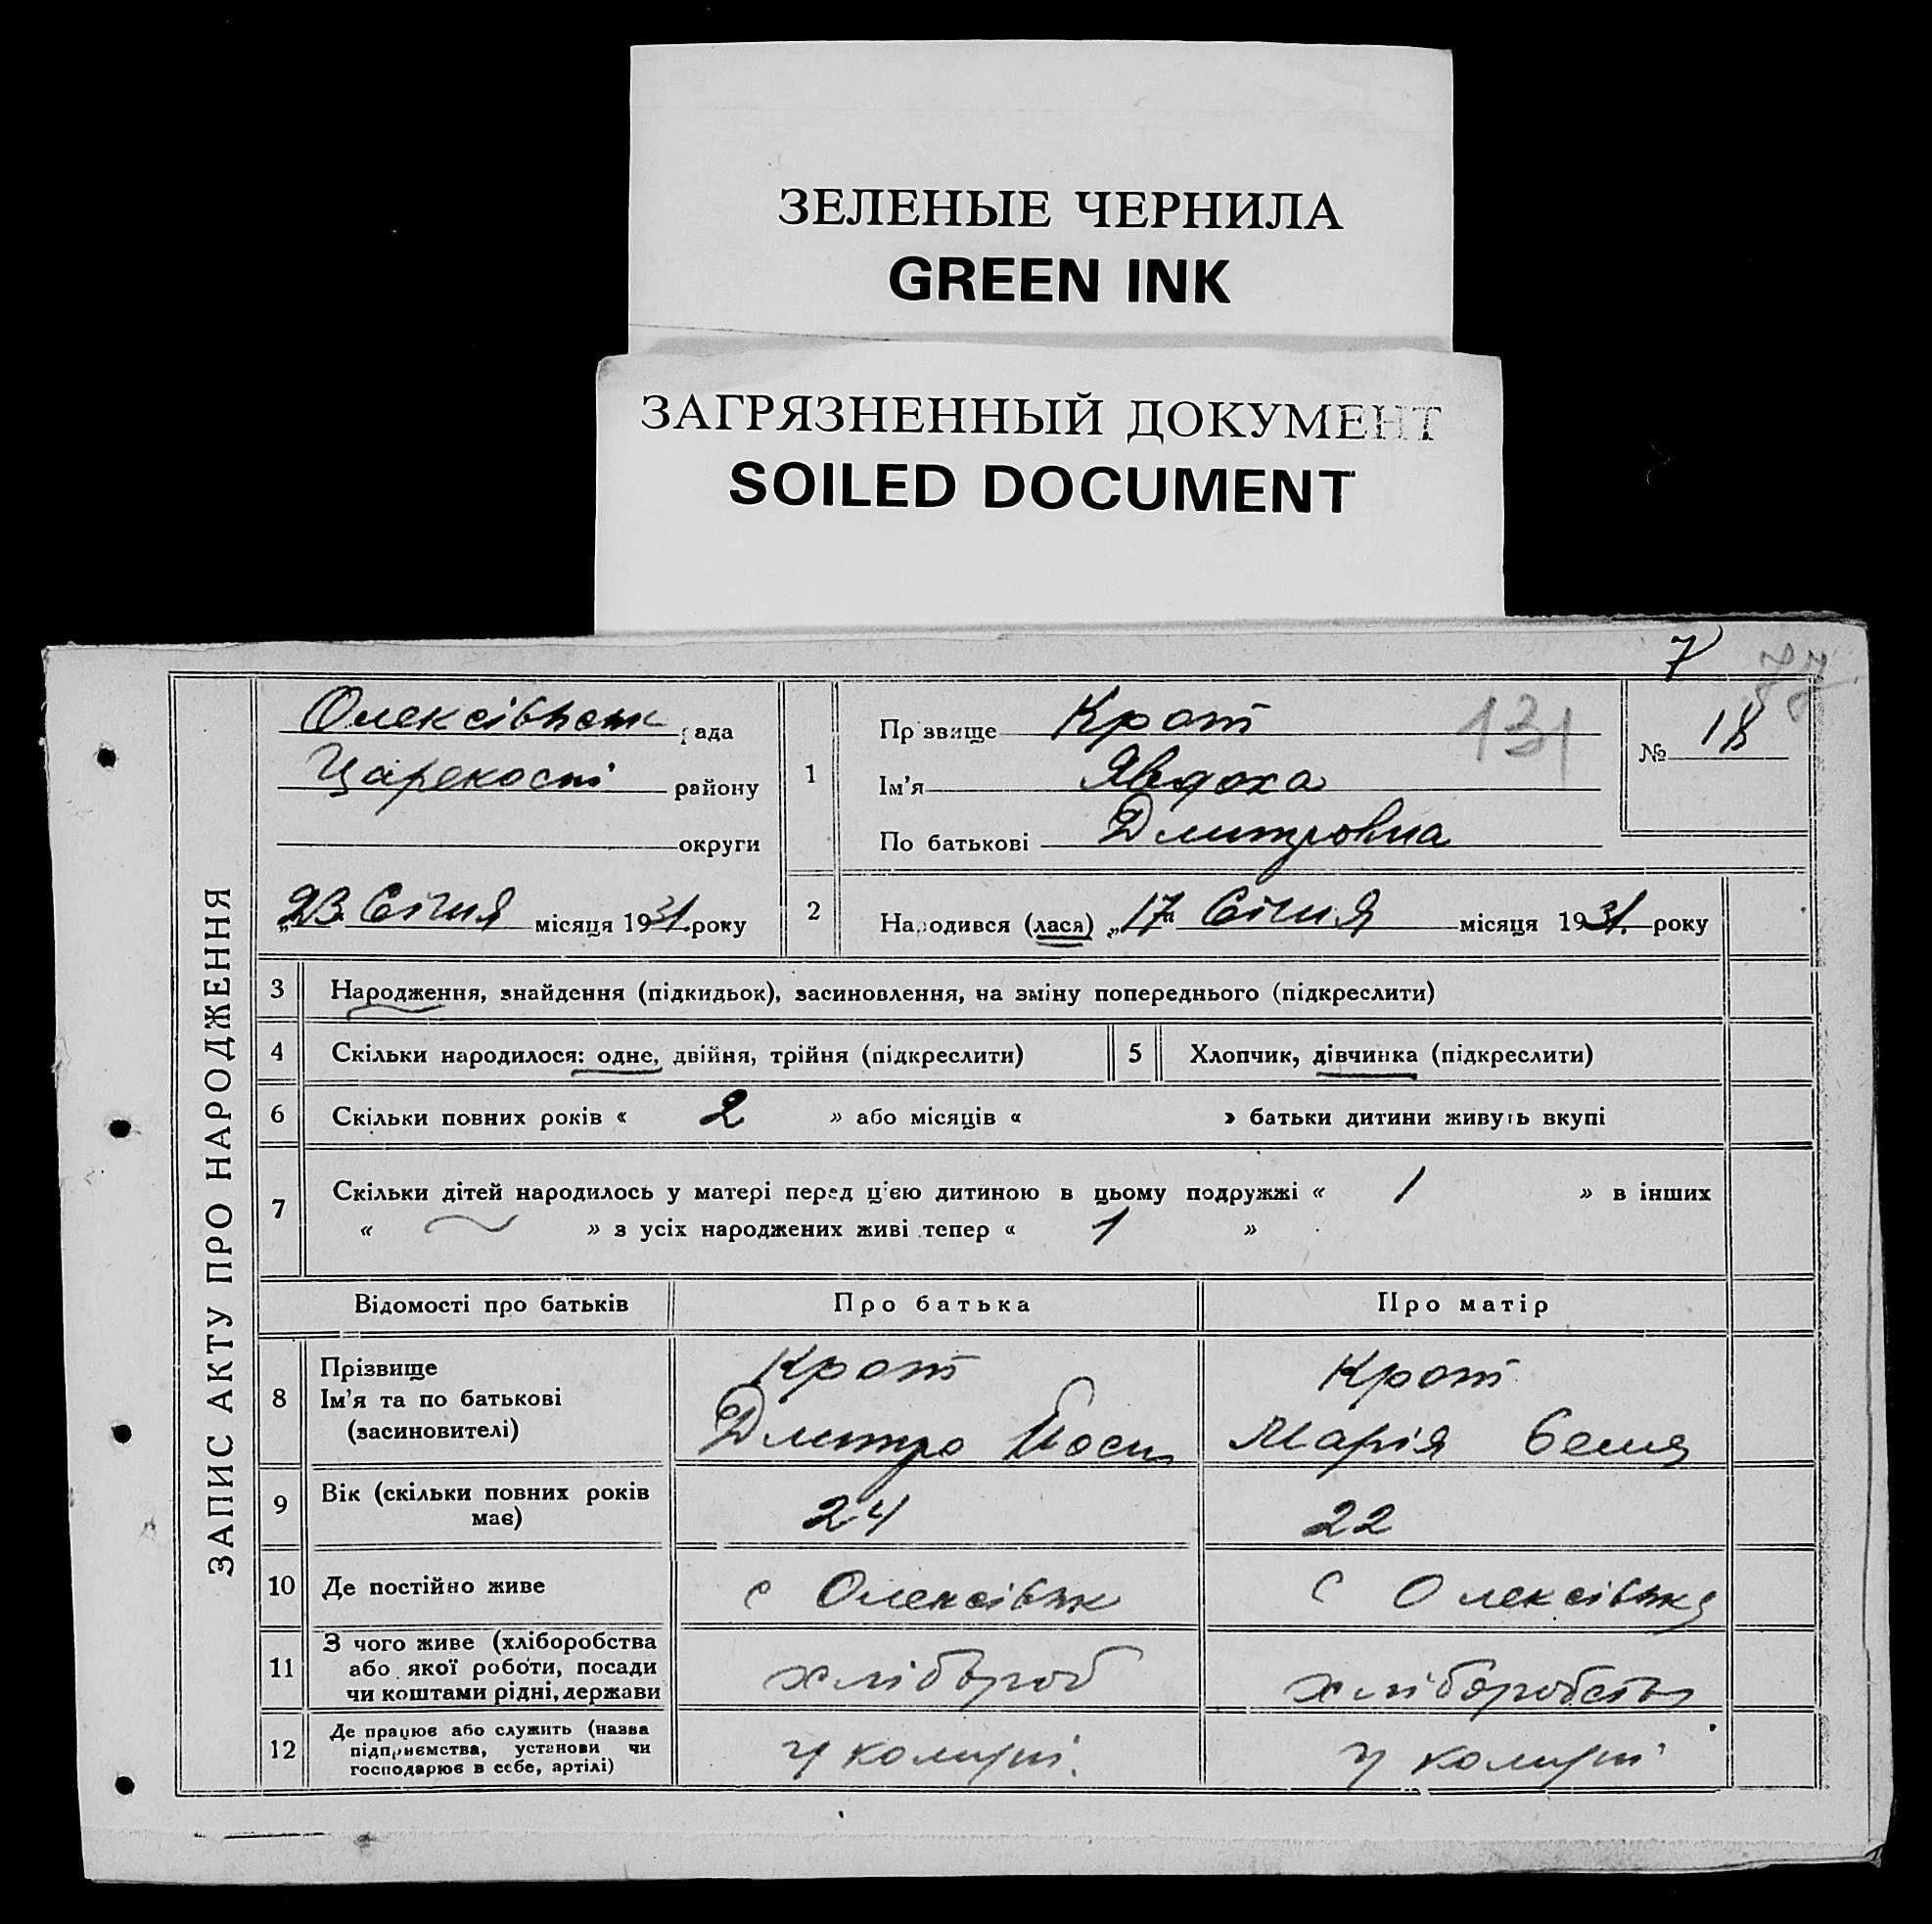 ЗЕЛЕНЫЕ ЧЕРНИЛА
GREEN INK
ЗАГРЯЗНЕННЫЙ ДОКУМЕНТ
SOILED DOCUMENT
7
77
ЗАПИС АКТУ ПРО НАРОДЖЕННЯ
Олексівськ рада
району
округи
„23 Січня місяця 1931 року
1
Прізвище Крот
Ім'я Явдоха
По батькові Дмитровна
131
№ 18
2 Народився (лася) „17" Січня місяця 1931. року
3 Народження, знайдення (підкидьок), засиновлення, на зміну попереднього (підкреслити)
4 Скільки народилося: одне, двійня, трійня (підкреслити) 5 Хлопчик, дівчинка (підкреслити)
6 Скільки повних років « 2 » або місяців « » батьки дитини живуть вкупі
7 Скільки дітей народилось у матері перед ц'єю дитиною в цьому подружжі « 1 » в інших
« » з усіх народжених живі тепер « 1 »
Відомості про батьків Про батька Про матір
8 Прізвище Крот Крот
Ім'я та по батькові Дмитро Йосип Марія
(засиновителі)
9 Вік (скільки повних років 24 22
має)
10 Де постійно живе с Олексівк с Олексівка
11 З чого живе (хліборобства
або якої роботи, посади хлібороб хліборобств
чи коштами рідні, держави
12 Де працює або служить (назва
підприємства, установи чи у комуні. у комуні
господарює в себе, артілі)